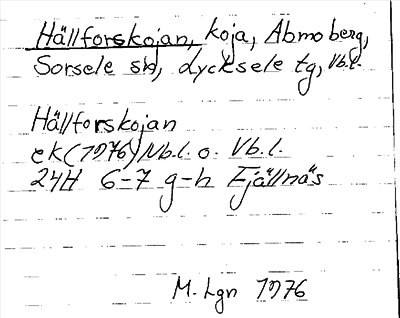 Hällforskojan, koja, Abmoberg,
Sorsele sn, Lycksele tg, Vb.l.
Hällforskojan
ek(1976) Nb.l. o. Vb.l.
24H 6-7 g-h Fjällnäs
M. Lgn 1976